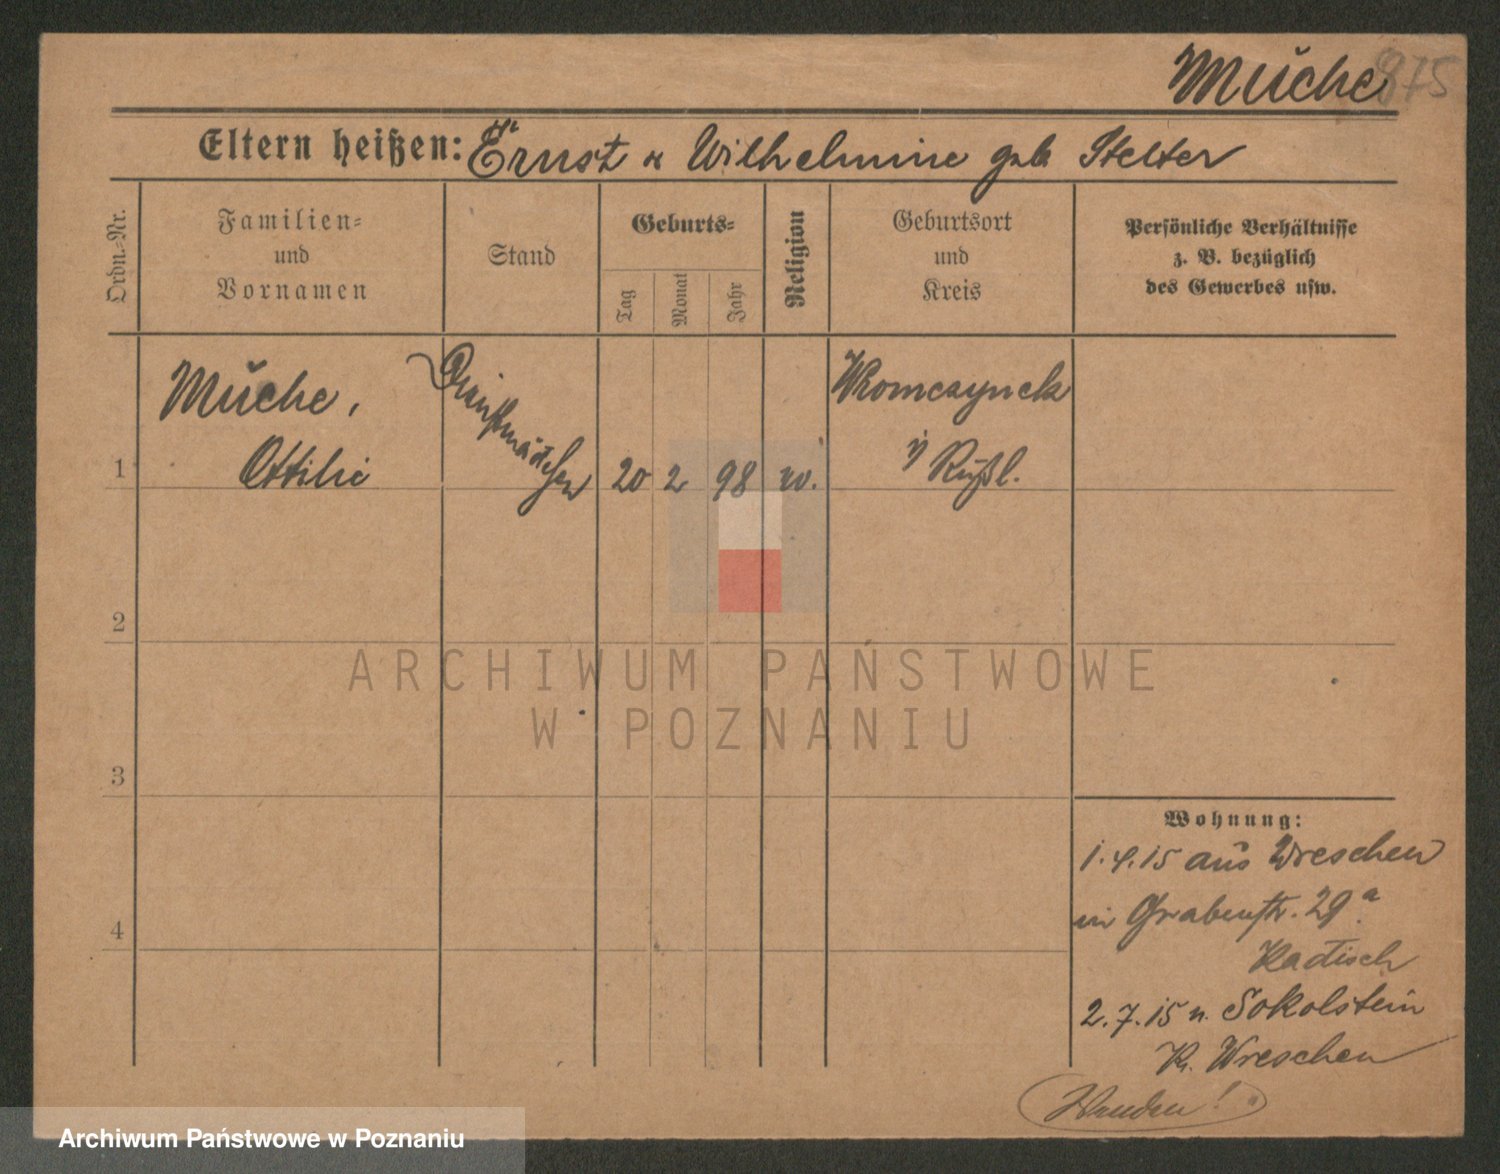 Muche
875
Eltern heißen: Ernst u Wilhelmine geb Stelter
Ordn.-Nr.
Familien-
und
Vornamen
Stand
Geburts-
Tag
Monat
Jahr
Religion
Geburtsort
und
Kreis
Persönliche Verhältnisse
z. B. bezüglich
des Gewerbes usw.
1
Muche,
Ottilie
Dienstmädchen
20 2 98
i/ Rußl.
2
3
4
ARCHIWUM PAŃSTWOWE
W POZNANIU
Wohnung:
1.4.15 aus Wreschen
in Grabenstr. 29a
Radisch
2.7.15 n. Sokolstein
Kr. Wreschen
Wenden!
Archiwum Państwowe w Poznaniu